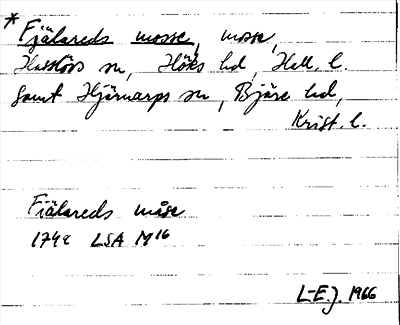 * Fjälareds mosse, mosse,
Hasslövs sn, Höks hd, Hall. l.
samt Hjärnarps sn, Bjäre hd,
Krist. l.
Fiälareds måse
1744 LSA M16
L-E.J. 1966